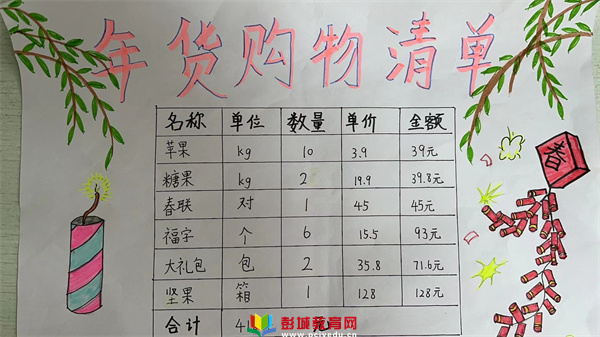 年货购物清单
名称 单位 数量 单价 金额
苹果 kg 10 3.9 39元
糖果 kg 2 19.9 39.8元
春联 对 1 45 45元
福字 个 6 15.5 93元
大礼包 包 2 35.8 71.6元
坚果 箱 1 128 128元
合计
春
彭城教育网